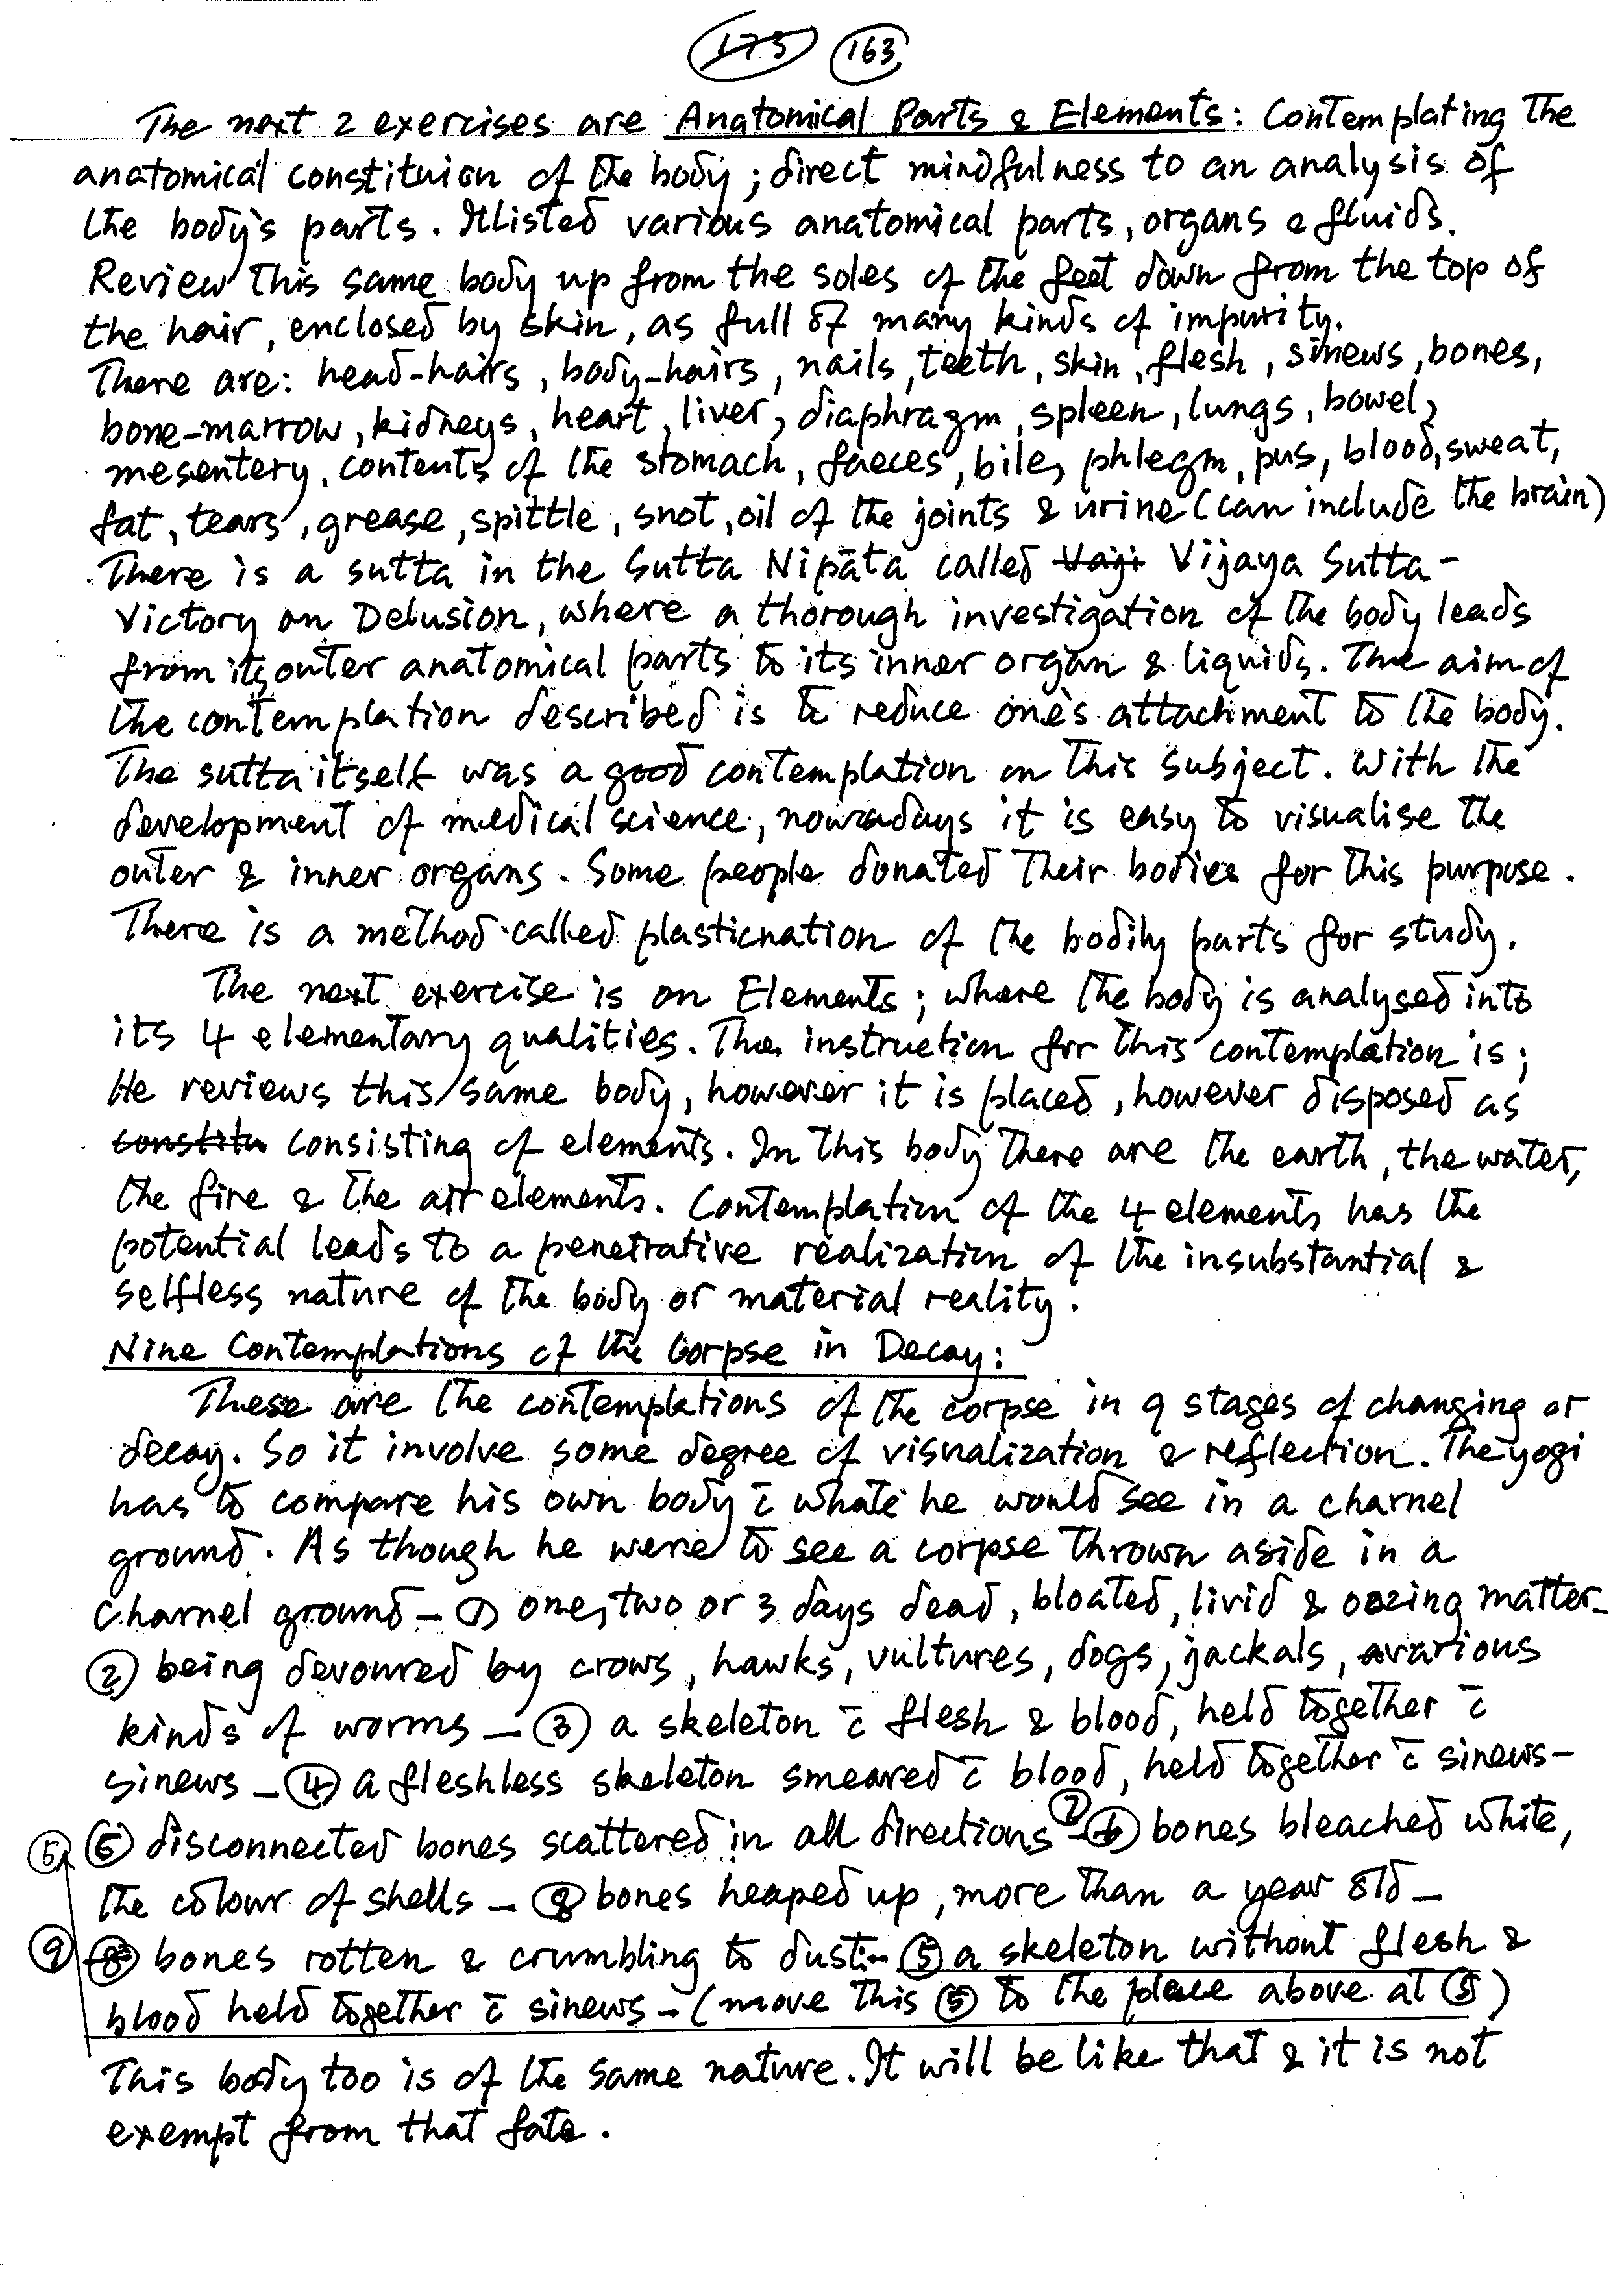 175 163
The next 2 exercises are Anatomical Parts & Elements: Contemplating the
anatomical constituion of the body; direct mindfulness to an analysis of
the body's parts. It listed various anatomical parts, organs & fluids.
Review this same body up from the soles of the feet down from the top of
the hair, enclosed by skin, as full of many kinds of impurity.
There are: head-hairs, body-hairs, nails, teeth, skin, flesh, sinews, bones,
bone-marrow, kidneys, heart, liver, diaphragm, spleen, lungs, bowel,
mesentery, contents of the stomach, faeces, bile, phlegm, pus, blood, sweat,
fat, tears, grease, spittle, snot, oil of the joints & urine (can include the brain)
There is a sutta in the Sutta Nipāta called Vaji Vijaya Sutta-
Victory on Delusion, where a thorough investigation of the body leads
from its outer anatomical parts to its inner organ & liquids. The aim of
the contemplation described is to reduce one's attachment to the body.
The sutta itself was a good contemplation on this subject. With the
development of medical science, nowadays it is easy to visualise the
outer & inner organs. Some people donated their bodies for this purpose.
There is a method called plasticnation of the bodily parts for study.
The next exercise is on Elements; where the body is analysed into
its 4 elementary qualities. The instruction for this contemplation is;
He reviews this same body, however it is placed, however disposed as
constitu consisting of elements. In this body there are the earth, the water,
the fire & the air elements. Contemplation of the 4 elements has the
potential leads to a penetrative realization of the insubstantial &
selfless nature of the body or material reality.
Nine Contemplations of the Corpse in Decay:
These are the contemplations of the corpse in 9 stages of changing or
decay. So it involve some degree of visualization & reflection. The yogi
has to compare his own body c̄ whate he would see in a charnel
ground. As though he were to see a corpse thrown aside in a
charnel ground – ① one, two or 3 days dead, bloated, livid & oozing matter –
② being devoured by crows, hawks, vultures, dogs, jackals, avarious
kinds of worms – ③ a skeleton c̄ flesh & blood, held together c̄
sinews – ④ a fleshless skeleton smeared c̄ blood, held together c̄ sinews –
⑤ ⑥ disconnected bones scattered in all directions – ⑦ ⑥ bones bleached white,
the colour of shells – ⑧ bones heaped up, more than a year old –
⑨ ⑧ bones rotten & crumbling to dust – ⑤ a skeleton without flesh &
blood held together c̄ sinews – (move this ⑤ to the place above at ⑤)
This body too is of the same nature. It will be like that & it is not
exempt from that fate.